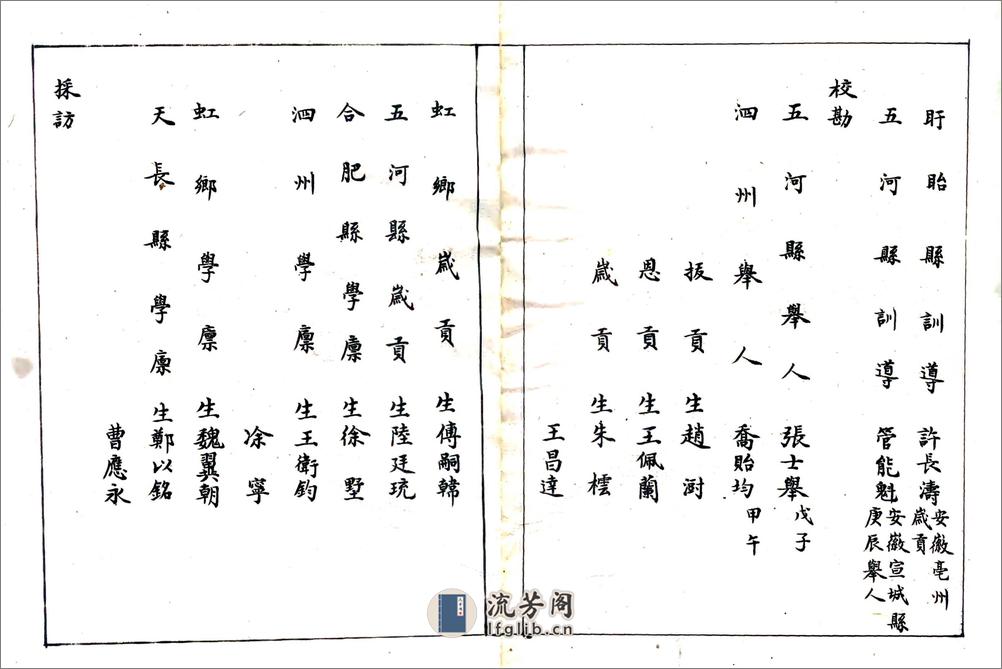 盱眙縣訓導許長濤安徽亳州歲貢
五河縣訓導管能魁安徽宣城縣庚辰舉人
校勘
五河縣舉人張士舉戊子
泗州舉人喬貽均甲午
拔貢生趙澍
恩貢生王佩蘭
歲貢生朱橒
王昌達
虹鄉歲貢生傅嗣韓
五河縣歲貢生陸廷玧
合肥縣學廩生徐墅
泗州學廩生王衛鈞
凃寧
虹鄉學廩生魏翼朝
天長縣學廩生鄭以銘
曹應永
採訪
流芳阁
lfglib.cn